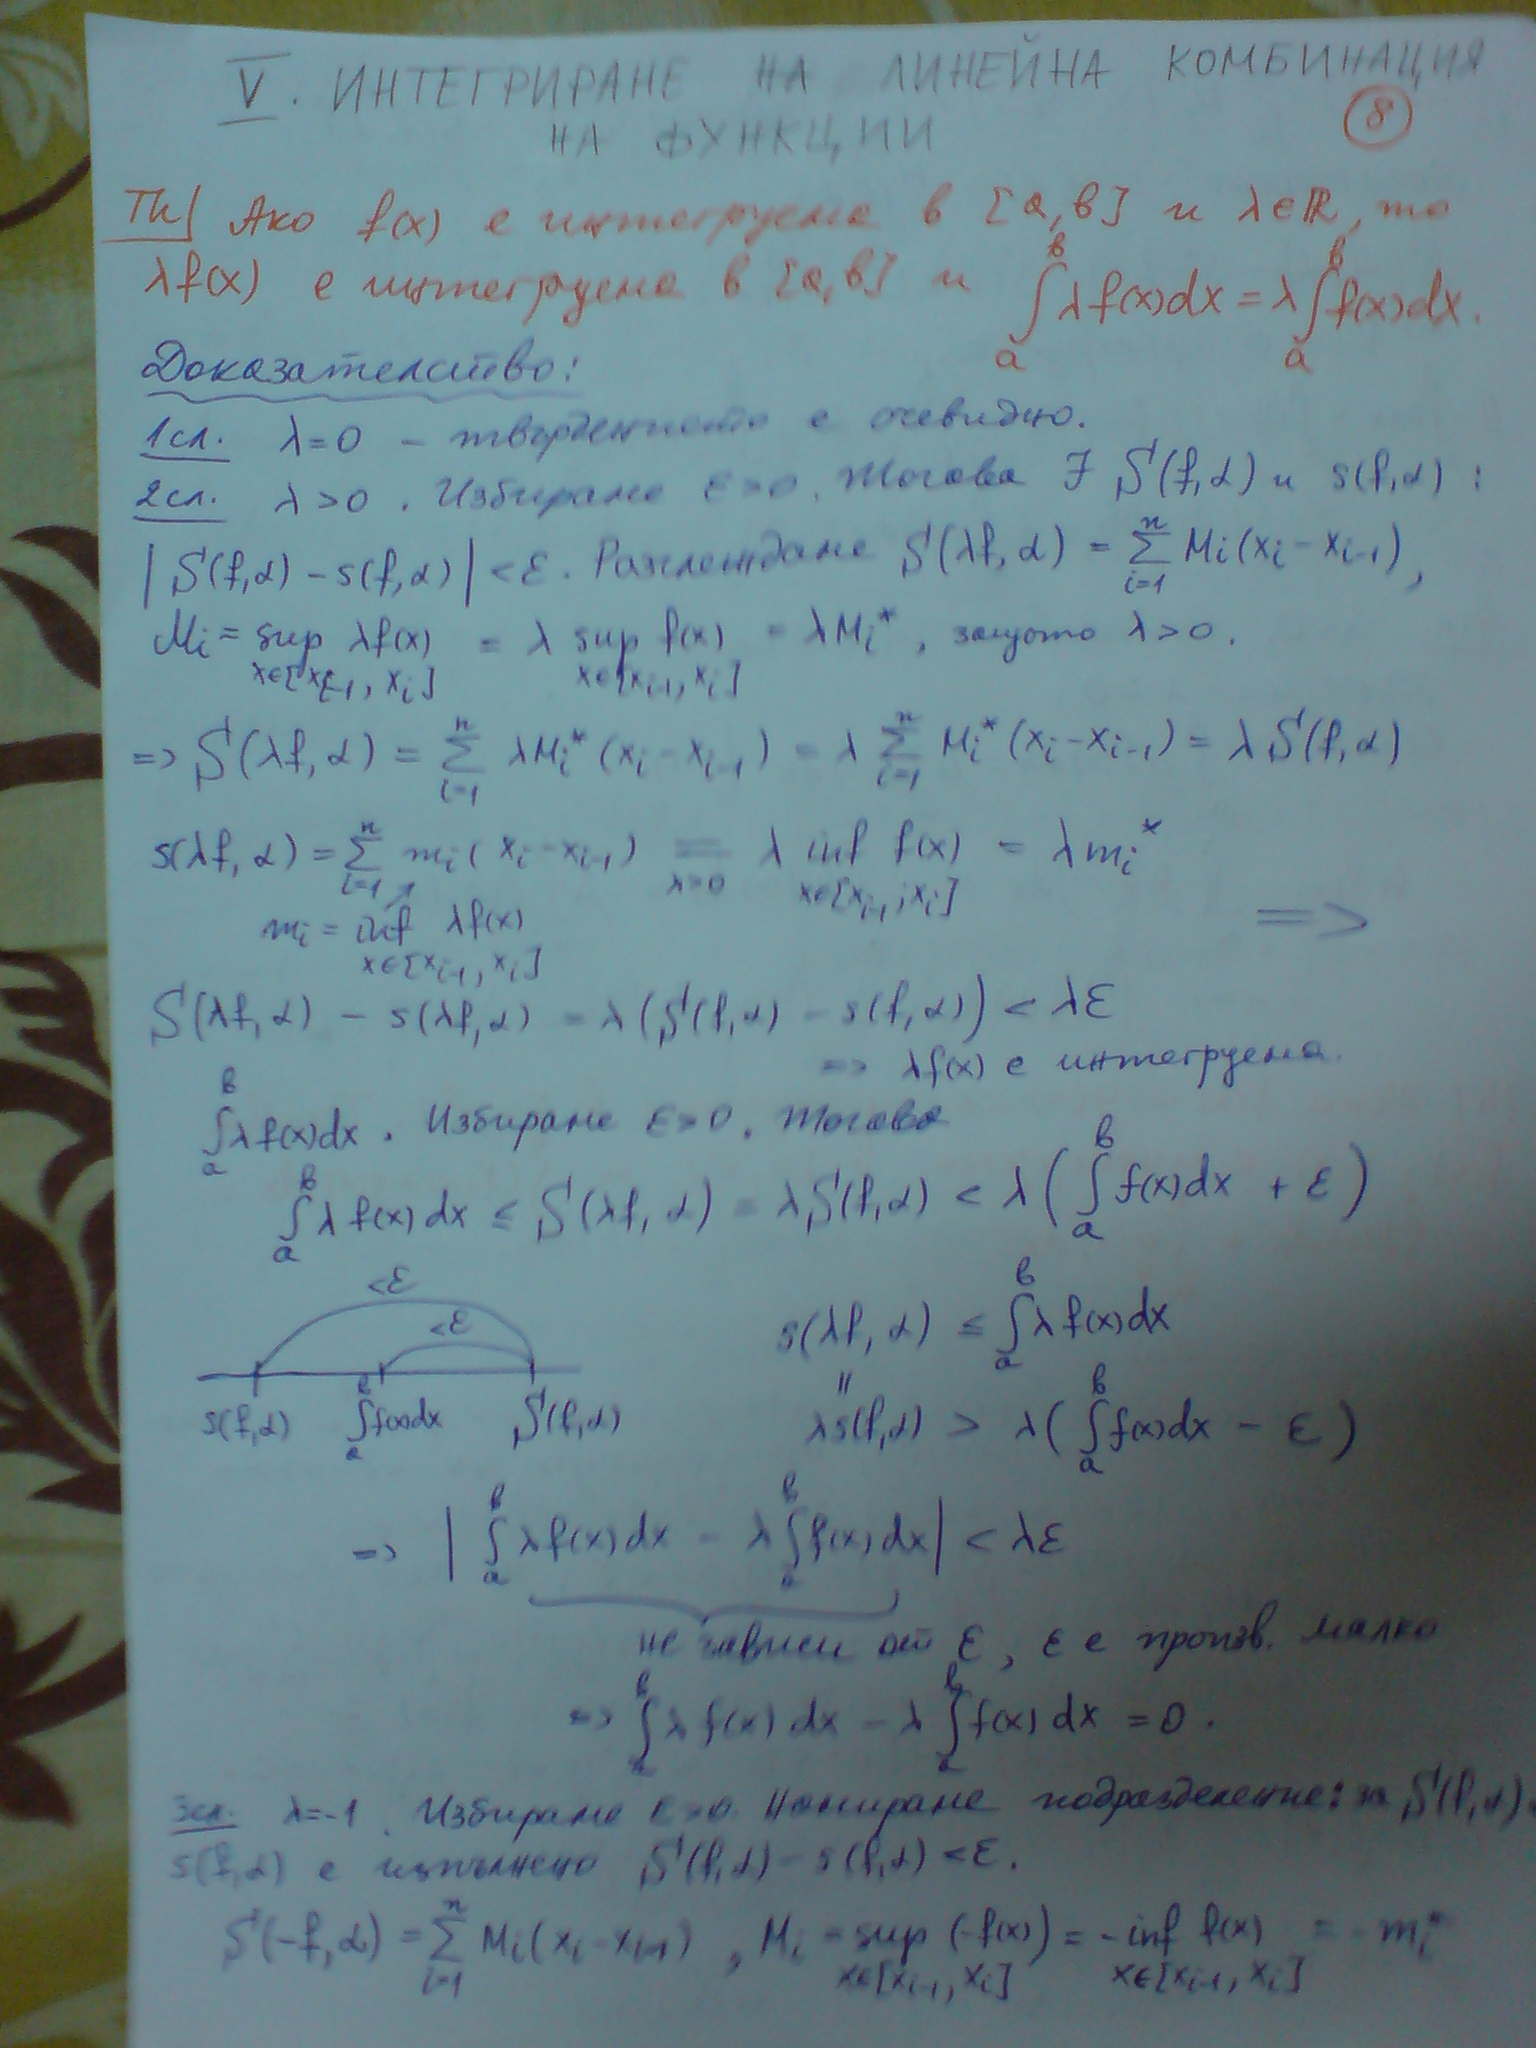 V. ИНТЕГРИРАНЕ НА ЛИНЕЙНА КОМБИНАЦИЯ
НА ФУНКЦИИ
8
Th| Ако f(x) е интегруема в [a,в] и λ∈ℝ, то
λf(x) е интегруема в [a,в] и ∫ₐᵇ λf(x)dx = λ∫ₐᵇ f(x)dx.
Доказателство:
1сл. λ=0 – твърдението е очевидно.
2сл. λ>0. Избираме ε>0. Тогава ∃ S(f,α) и s(f,α):
|S(f,α) – s(f,α)| < ε. Разглеждаме S(λf,α) = ∑ᵢ₌₁ⁿ Mᵢ(xᵢ – xᵢ₋₁),
Mᵢ = sup λf(x) = λ sup f(x) = λMᵢ*, защото λ>0.
x∈[xᵢ₋₁, xᵢ] x∈[xᵢ₋₁, xᵢ]
=> S(λf,α) = ∑ᵢ₌₁ⁿ λMᵢ*(xᵢ – xᵢ₋₁) = λ ∑ᵢ₌₁ⁿ Mᵢ*(xᵢ – xᵢ₋₁) = λS(f,α)
s(λf,α) = ∑ᵢ₌₁ⁿ mᵢ(xᵢ – xᵢ₋₁) = λ inf f(x) = λmᵢ*
λ>0 x∈[xᵢ₋₁; xᵢ]
mᵢ = inf λf(x) =>
x∈[xᵢ₋₁, xᵢ]
S(λf,α) – s(λf,α) = λ(S(f,α) – s(f,α)) < λε
=> λf(x) е интегруема.
∫ₐᵇ λf(x)dx. Избираме ε>0. Тогава
∫ₐᵇ λf(x)dx ≤ S(λf,α) = λS(f,α) < λ(∫ₐᵇ f(x)dx + ε)
<ε
<ε
s(λf,α) ≤ ∫ₐᵇ λf(x)dx
s(f,α) ∫ₐᵇ f(x)dx S(f,α)
||
λs(f,α) > λ(∫ₐᵇ f(x)dx – ε)
=> |∫ₐᵇ λf(x)dx – λ∫ₐᵇ f(x)dx| < λε
не зависи от ε, ε е произв. малко
=> ∫ₐᵇ λf(x)dx – λ∫ₐᵇ f(x)dx = 0.
3сл. λ=-1. Избираме ε>0. Намираме подразделение: за S(f,α)
s(f,α) е изпълнено S(f,α) – s(f,α) < ε.
S(-f,α) = ∑ᵢ₌₁ⁿ Mᵢ(xᵢ – xᵢ₋₁), Mᵢ = sup (-f(x)) = -inf f(x) = -mᵢ*
x∈[xᵢ₋₁, xᵢ] x∈[xᵢ₋₁, xᵢ]